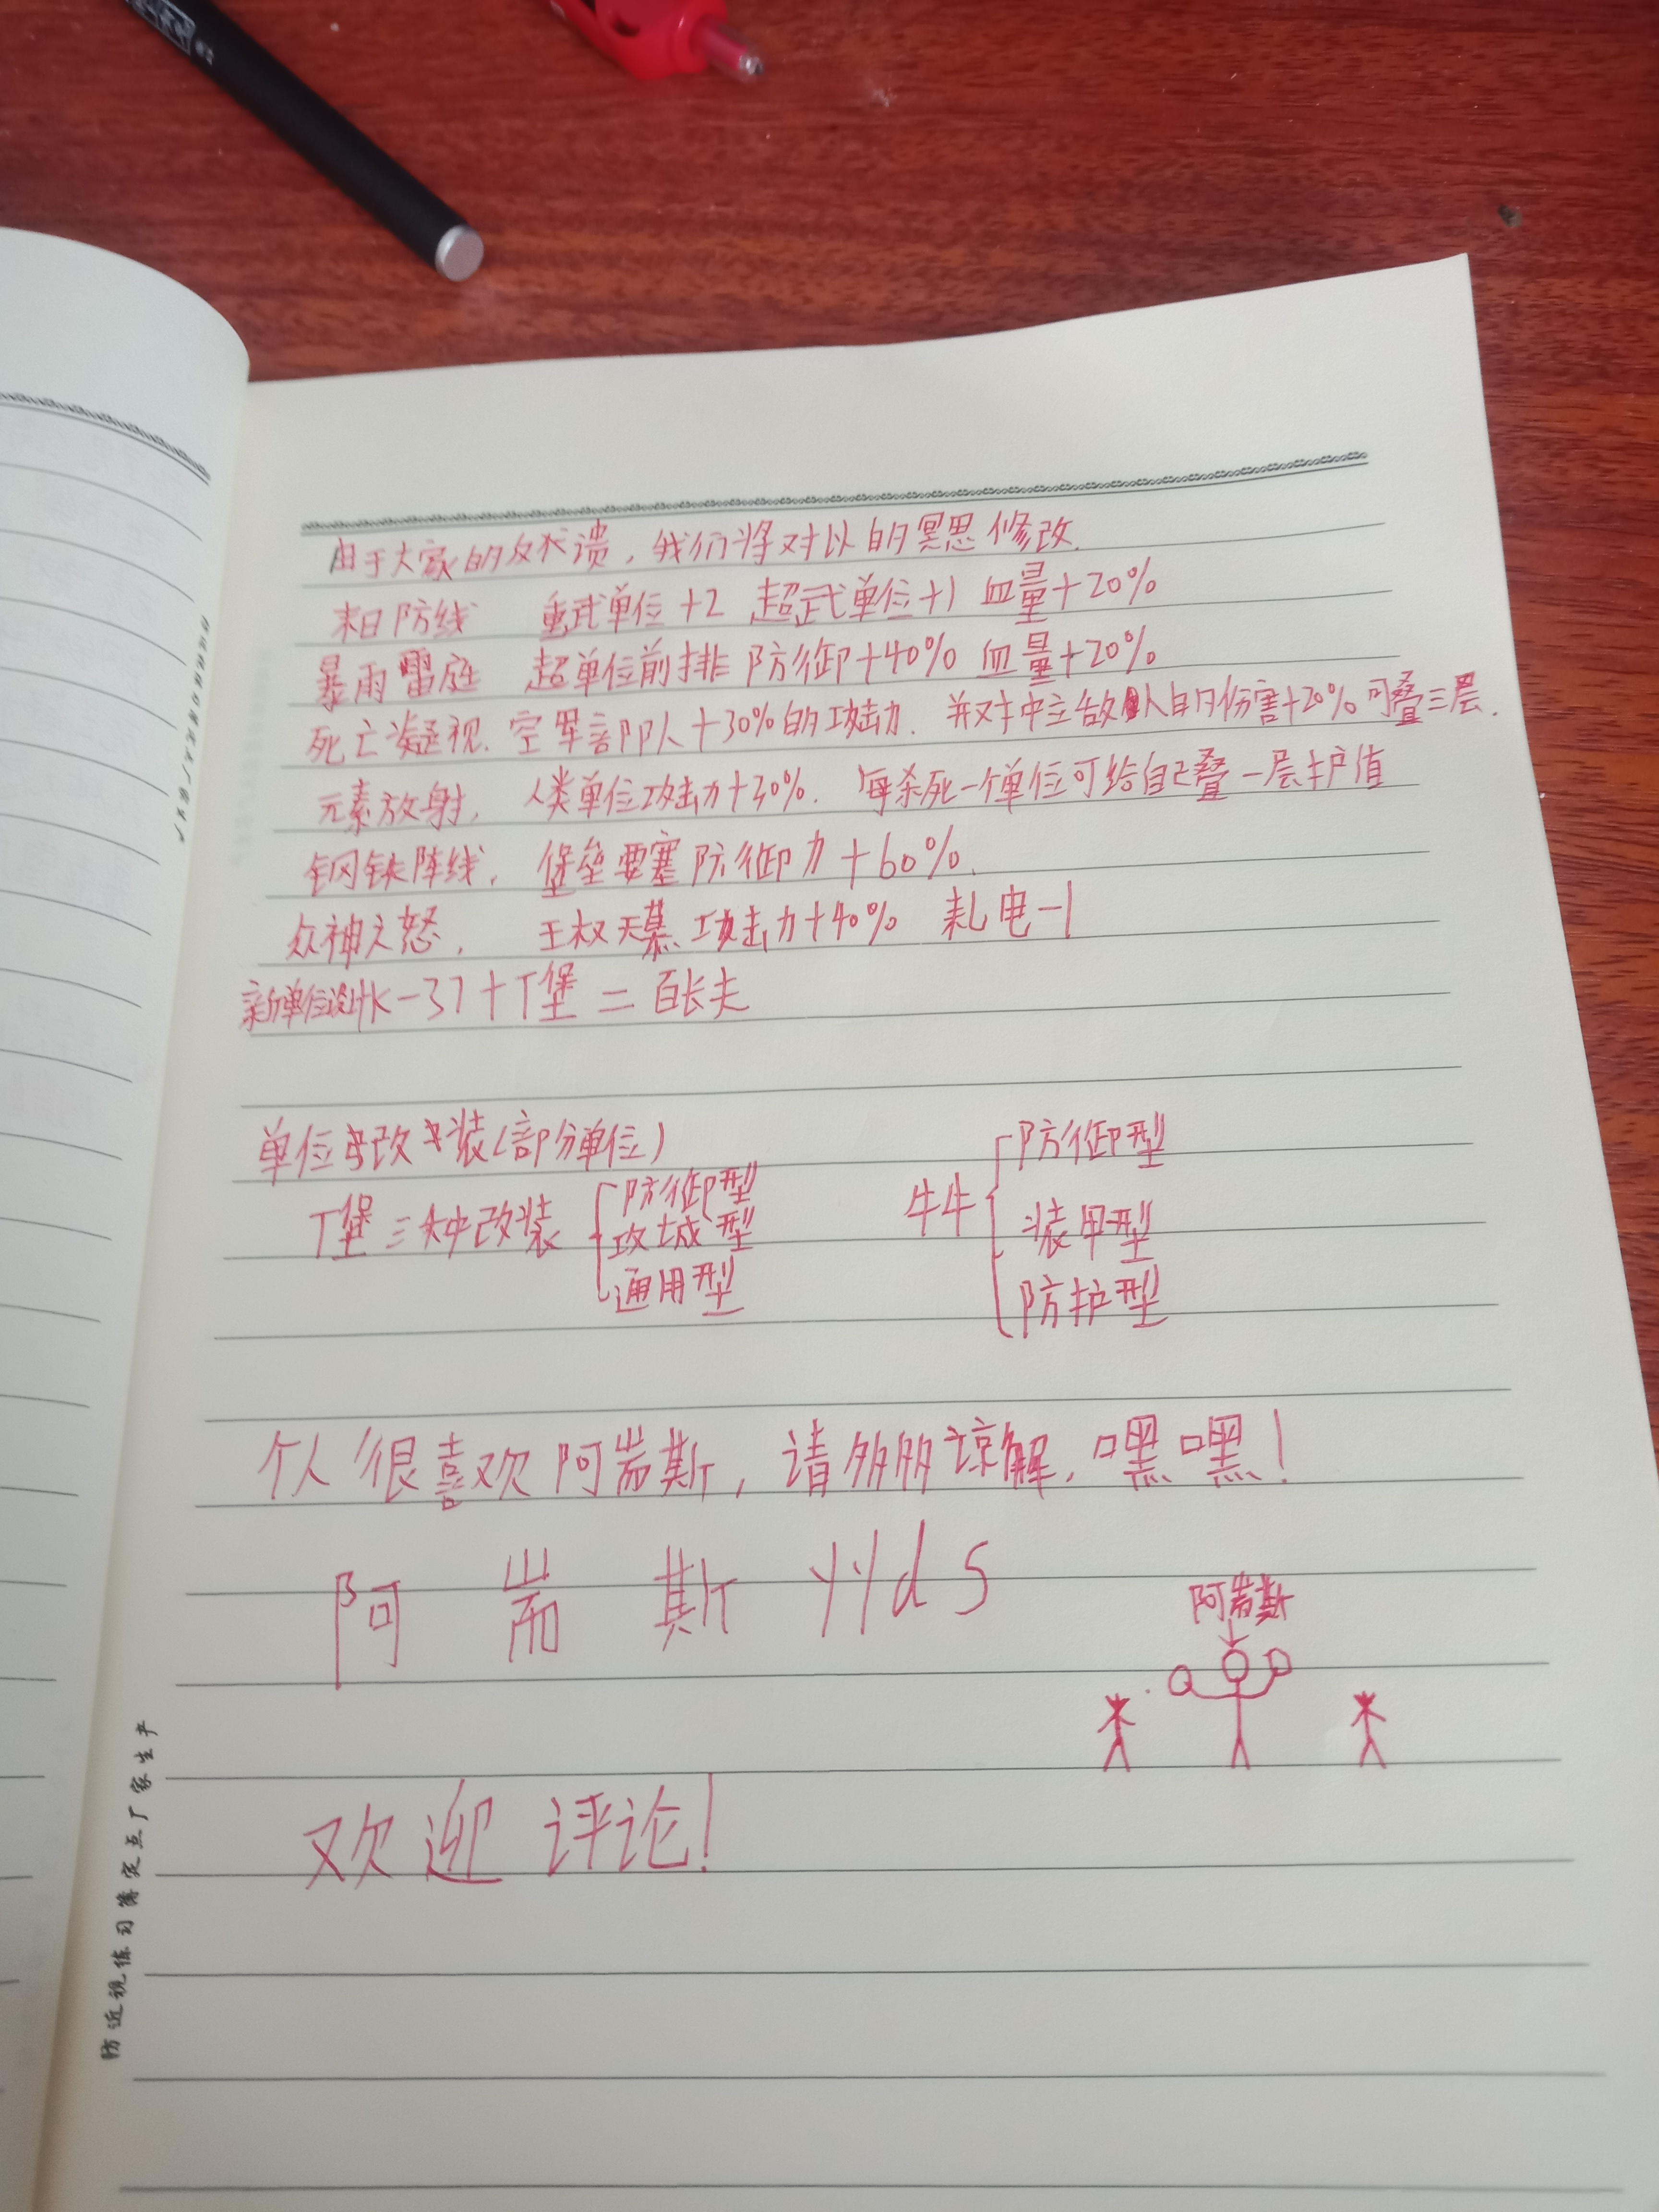 由于大家的反馈，我们将对以的冥思修改.
末日防线 重武单位+2 超武单位+1 血量+20%
暴雨雷庭 超单位前排 防御+40% 血量+20%
死亡凝视. 空军部队人+30%的攻击力. 并对中立敌人的伤害+20%可叠三层.
元素放射, 人类单位攻击力+30%. 每杀死一个单位可给自己叠一层护值
钢铁阵线, 堡垒要塞防御力+60%.
众神之怒, 王权天幕 攻击力+40% 耗电-1
新单位设计K-37+T堡=百长夫
单位改装(部分单位)
T堡三种改装 防御型 攻城型 通用型
牛牛 防御型 装甲型 防护型
个人很喜欢阿耑斯, 请多多谅解, 嘿嘿!
阿耑斯yyds
阿耑斯
欢迎评论!
防近视练习簿定点厂家生产